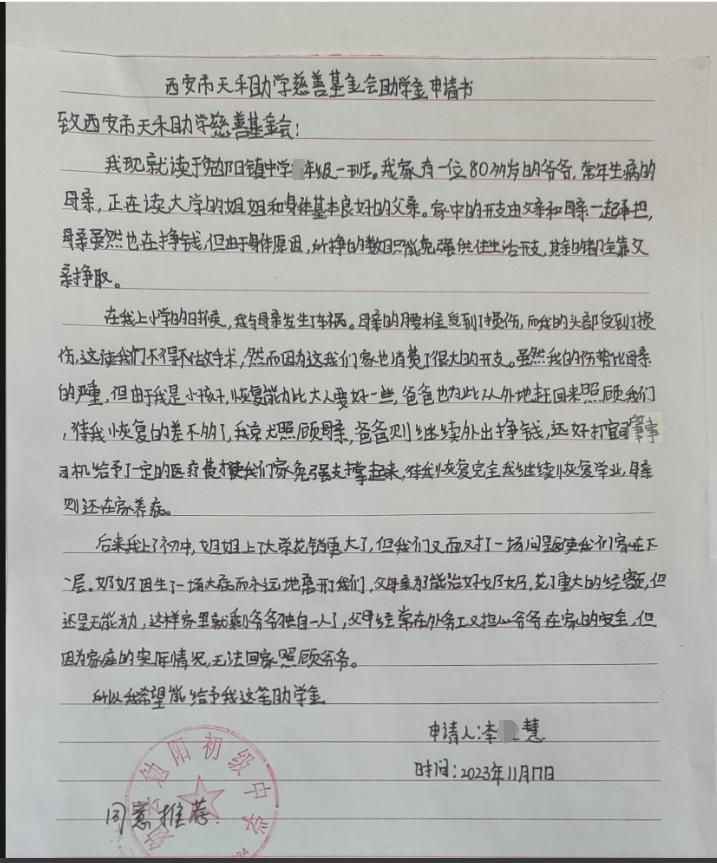 西安市天禾助学慈善基金会助学金申请书
致西安市天禾助学慈善基金会：
我现就读于勉阳镇中学年级一班。我家有一位80多岁的爷爷，常年生病的
母亲，正在读大学的姐姐和身体基本良好的父亲。家中的开支由父亲和母亲一起承担，
母亲虽然也在挣钱，但由于身体原因，所挣的数目只能勉强供住生活开支，其余的都全靠父
亲挣取。
在我上小学的时候，我与母亲发生了车祸。母亲的腰椎受到了损伤，而我的头部受到了损
伤，这使我们不得不做手术，然而因为这我们家也消费了很大的开支。虽然我的伤势比母亲
的严重，但由于我是小孩子，恢复能力比大人要好一些，爸爸也为此从外地赶回来照顾我们
，待我恢复的差不多了，我就照顾母亲，爸爸则继续外出挣钱，还好打官司肇事
司机给予了一定的医疗使我们家免强支撑起来，待我恢复完全我继续恢复学业，母亲
则还在家养病。
后来我上了初中，姐姐上了大学花销更大了，但我们又面对了一场问题使我们家在下
层。奶奶因生了一场大病而永远地离开我们，父母亲为了能治好奶奶，花了重大的经额，但
还是无能为力，这样家里就剩爷爷独自一人了，父母经常在外务工又担心爷爷在家的安全，但
因为家庭的实际情况，无法回家照顾爷爷。
所以我希望能给予我这笔助学金
申请人：李慧
时间：2023年11月17日
勉阳初级中学
同意推荐.